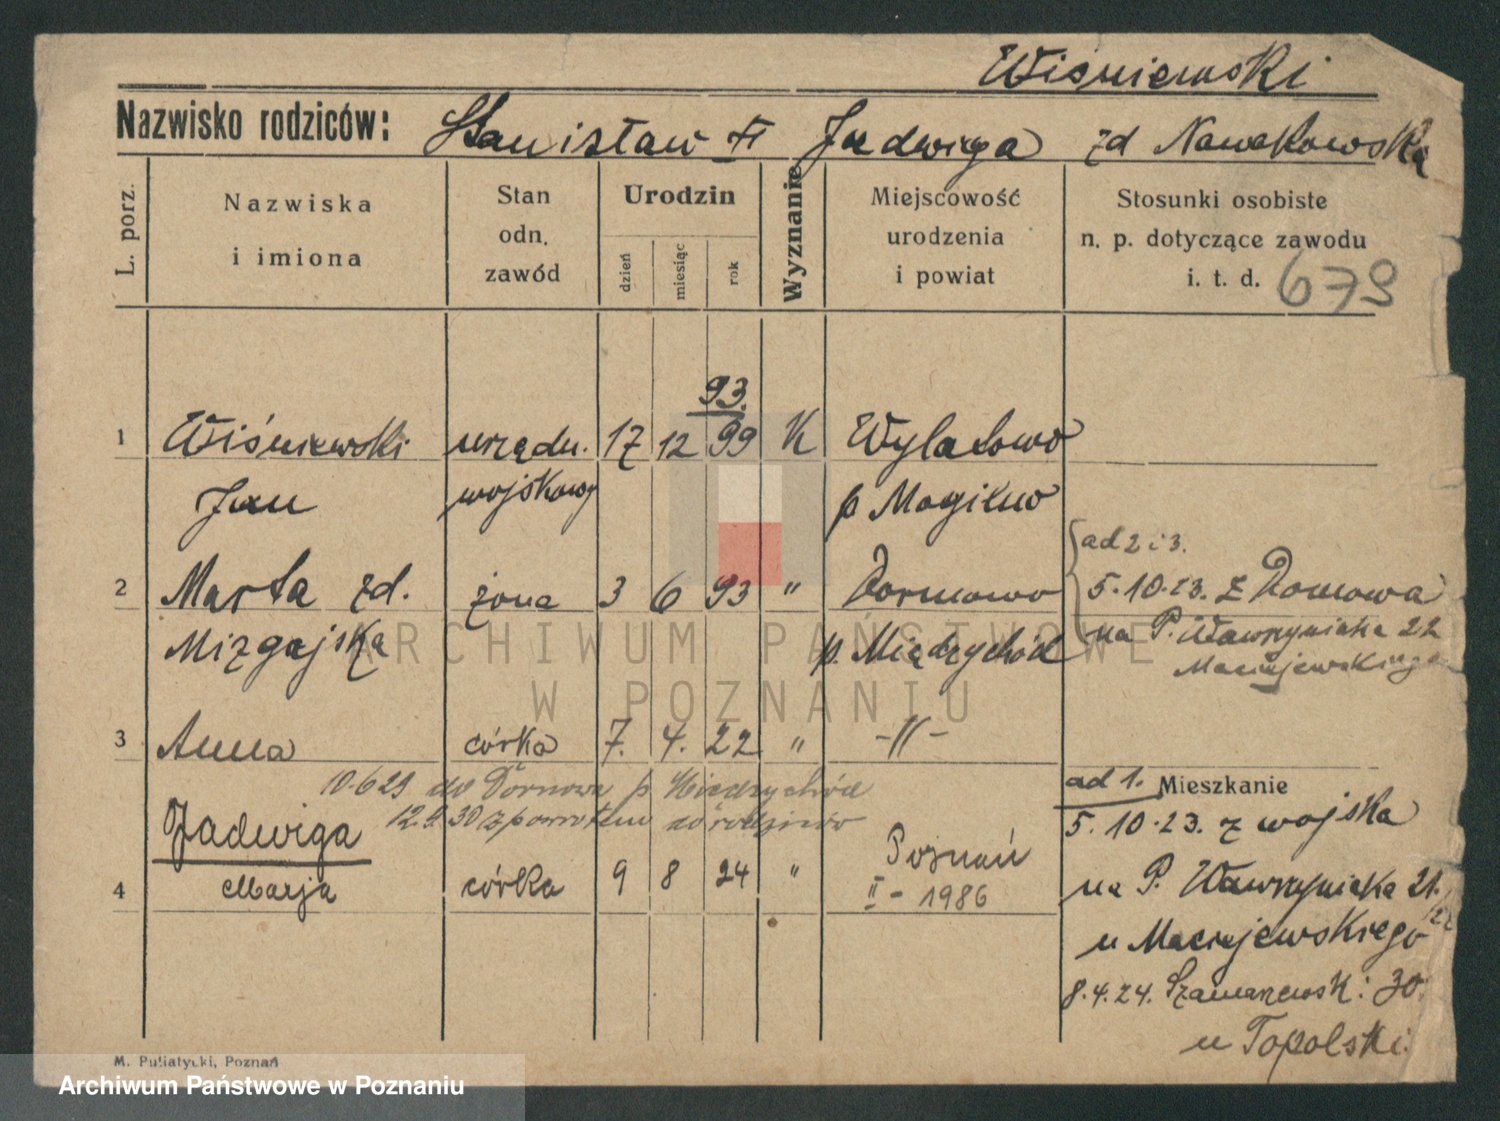 Wiśniewski
Nazwisko rodziców: Stanisław Jadwiga zd Nowakowska
L. porz.
Nazwiska i imiona
Stan odn. zawód
Urodzin
dzień
miesiąc
rok
Wyznanie
Miejscowość urodzenia i powiat
Stosunki osobiste n. p. dotyczące zawodu i. t. d.
679
93.
1 Wiśniewski urzędn. 17 12 99 K Wylatowo
Jan wojskowy p Mogilno
ad 2 i 3.
2 Marta zd. żona 3 6 93 " Dormowo 5.10.23. z Domowa
Mizgajska p. Międzychód na P. Wawrzyniaka 22
Maciejewskiego
3 Anna córka 7. 4. 22 " -"-
10.6 29 do Dornowa p Międzychód
ad 1. Mieszkanie
12.9.30 z powrotem do rodziców
5.10.23. z wojska
Jadwiga Poznań
4 Marja córka 9 8 24 " II - 1986
na P. Wawrzyniaka 21.
22
u Maciejewskiego
8.4.24. Szamarzewsk: 30.
u Topolski.
M. Puliatycki, Poznań
Archiwum Państwowe w Poznaniu
ARCHIWUM PAŃSTWOWE
W POZNANIU